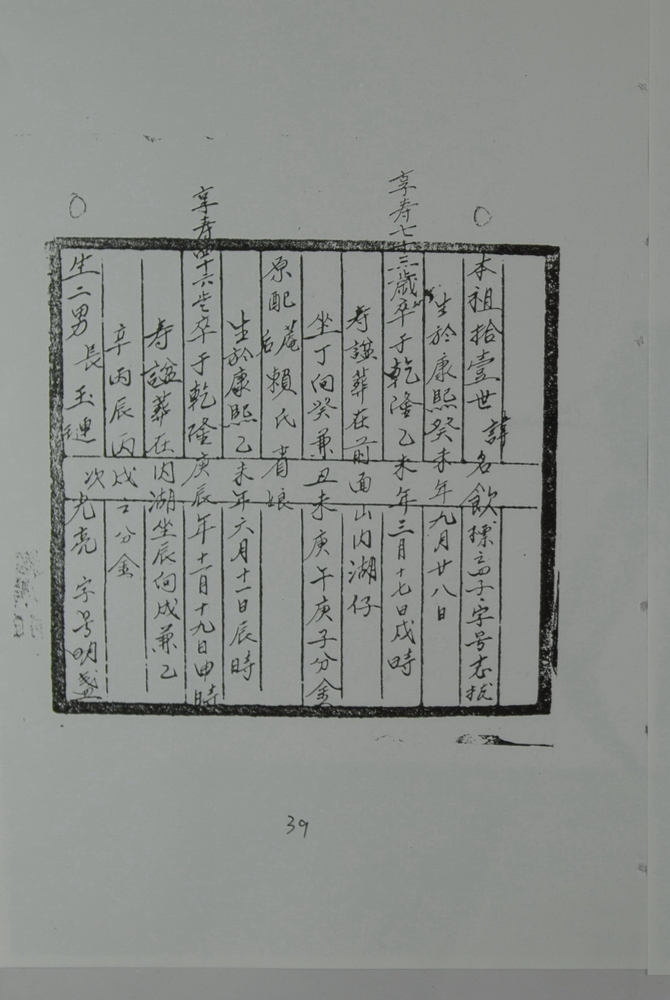 本祖拾壹世諱名飲標高子字号志
生於康熙癸未年九月廿八日
享寿七十三歲卒于乾隆乙未年三月十七日戌時
寿諡葬在前面山内湖仔
坐丁向癸兼丑未庚午庚子分金
原配庵后賴氏省娘
生於康熙乙未年六月十一日辰時
享寿四十六岁卒于乾隆庚辰年十一月十九日申時
寿諡葬在内湖坐辰向戌兼乙
辛丙辰丙戌分金
生二男長玉璉次光亮字号明盛
39